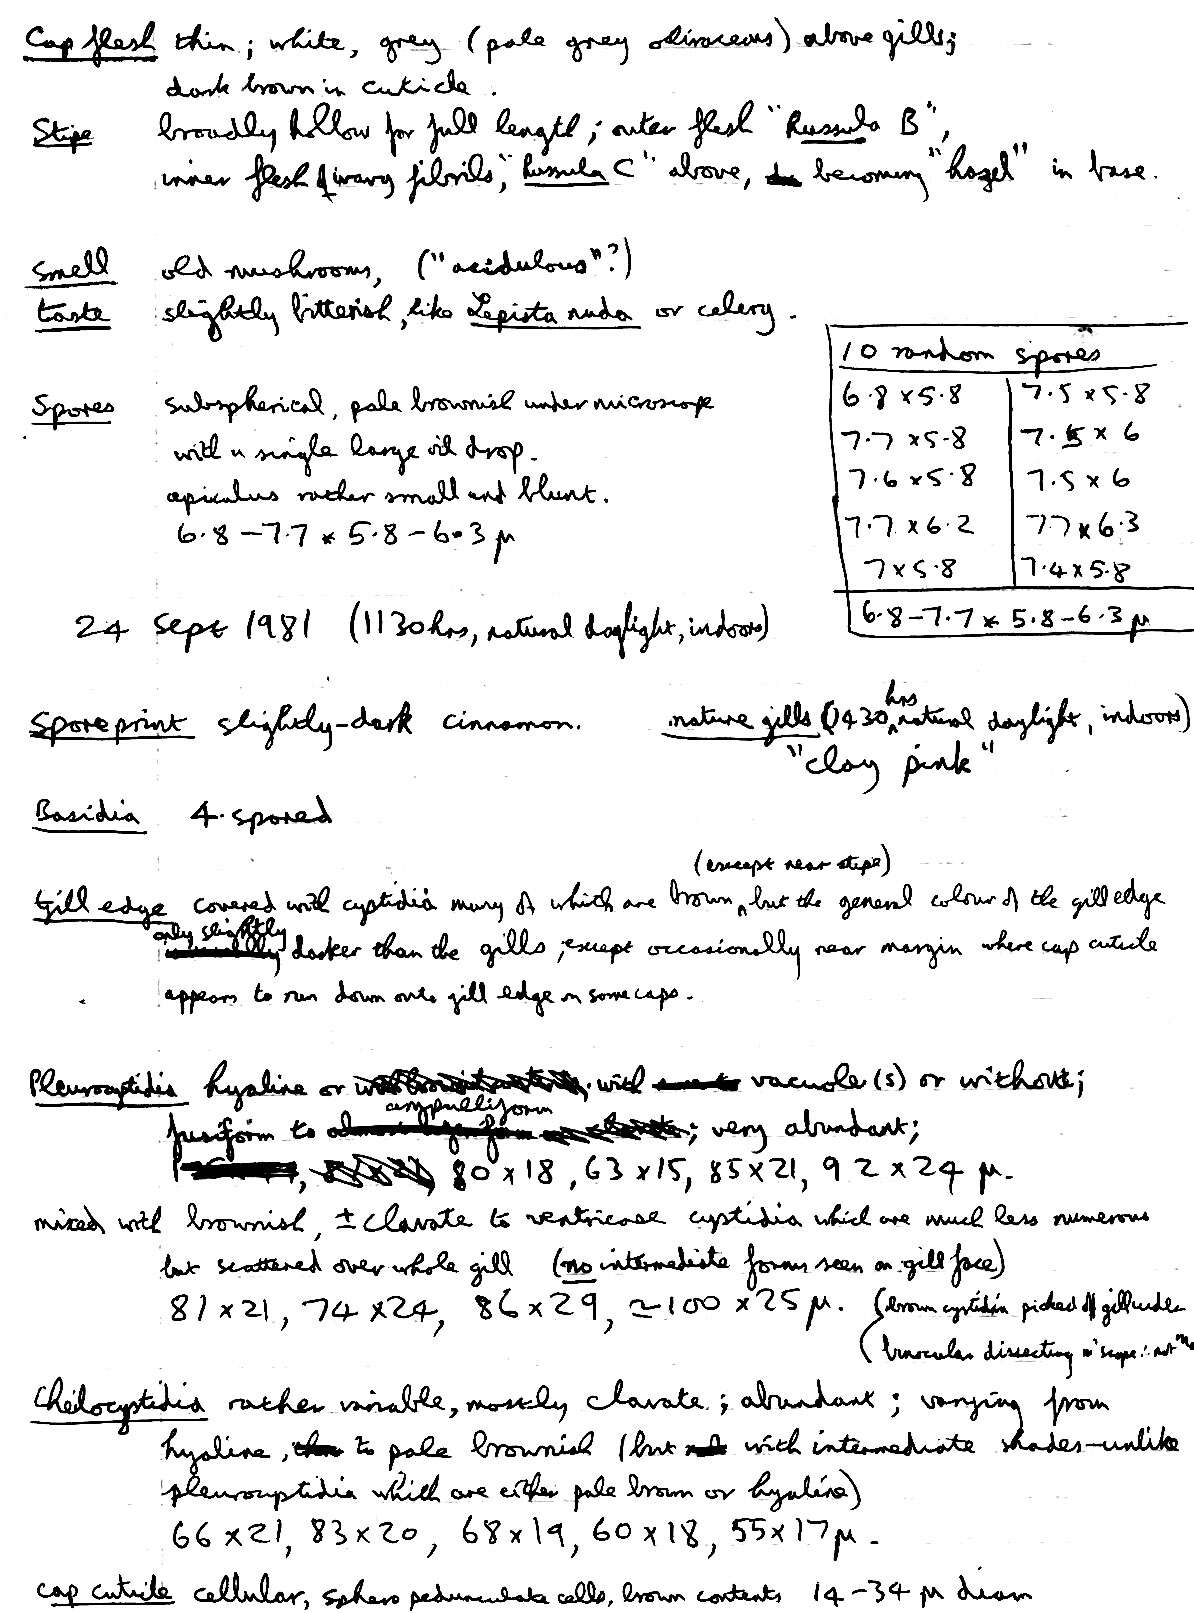 Cap flesh thin; white, grey (pale grey olivaceous) above gills;
dark brown in cuticle.
Stipe broadly hollow for full length; outer flesh "Russula B",
inner flesh of wavy fibrils, "Russula C" above, becoming "hazel" in base.
Smell old mushrooms, ("acidulous"?)
taste slightly bitterish, like Lepista nuda or celery.
10 random spores
6.8 x 5.8 7.5 x 5.8
7.7 x 5.8 7.5 x 6
7.6 x 5.8 7.5 x 6
7.7 x 6.2 7.7 x 6.3
7 x 5.8 7.4 x 5.8
6.8-7.7 x 5.8-6.3 µ
Spores subspherical, pale brownish under microscope
with a single large oil drop.
apiculus rather small and blunt.
6.8-7.7 x 5.8-6.3 µ
24 Sept 1981 (1130 hrs, natural daylight, indoors)
Spore print slightly-dark cinnamon. mature gills (1430 hrs natural daylight, indoors)
"clay pink"
Basidia 4-spored
(except near stipe)
Gill edge covered with cystidia many of which are brown, but the general colour of the gill edge
only slightly
darker than the gills, except occasionally near margin where cap cuticle
appears to run down onto gill edge on some caps.
Pleurocystidia hyaline or with vacuole(s) or without;
ampulliform
fusiform to ; very abundant;
80 x 18, 63 x 15, 85 x 21, 92 x 24 µ.
mixed with brownish, ± clavate to ventricose cystidia which are much less numerous
but scattered over whole gill (no intermediate forms seen on gill face)
81 x 21, 74 x 24, 86 x 29, ≃100 x 25 µ. (brown cystidia picked off gill under
(binocular dissecting m'scope ∴ not
Cheilocystidia rather variable, mostly clavate; abundant; varying from
hyaline, to pale brownish (but with intermediate shades-unlike
pleurocystidia which are either pale brown or hyaline)
66 x 21, 83 x 20, 68 x 19, 60 x 18, 55 x 17 µ.
cap cuticle cellular, sphero pedunculate cells, brown contents 14-34 µ diam